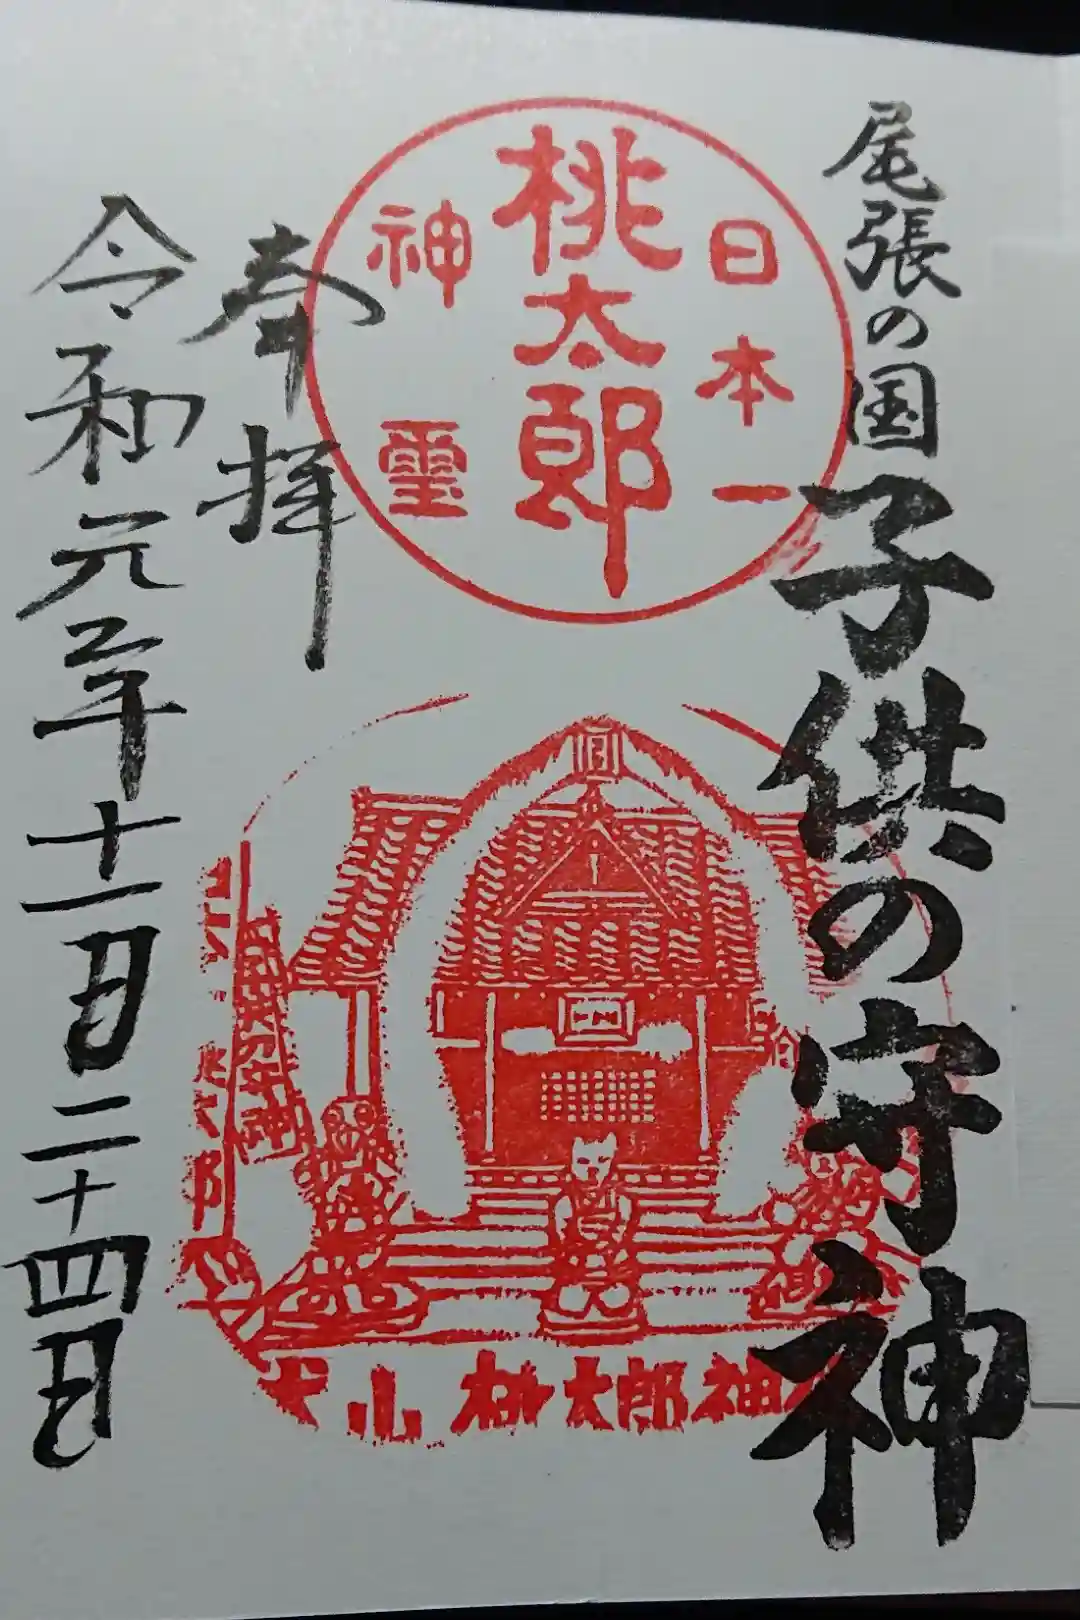 尾張の国
子供の守神
日本一
桃太郎
神霊
奉拝
令和元年十一月二十四日
犬山桃太郎神